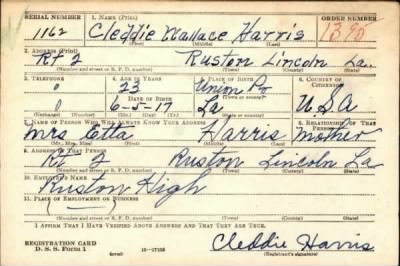 SERIAL NUMBER 1. NAME (Print) ORDER NUMBER
1162 Cleddie Wallace Harris 1390
(First) (Middle) (Last)
2. ADDRESS (Print)
Rt 2 Ruston Lincoln La.
(Number and street or R. F. D. number) (Town) (County) (State)
3. TELEPHONE 4. AGE IN YEARS 5. PLACE OF BIRTH 6. COUNTRY OF CITIZENSHIP
0 23 Union Pa
(Town or county)
DATE OF BIRTH
0 6-5-17 La U.S.A
(Exchange) (Number) (Mo.) (Day) (Yr.) (State or country)
7. NAME OF PERSON WHO WILL ALWAYS KNOW YOUR ADDRESS 8. RELATIONSHIP OF THAT PERSON
Mrs Etta Harris Mother
(Mr., Mrs., Miss) (First) (Middle) (Last)
9. ADDRESS OF THAT PERSON
Rt 2 Ruston Lincoln La
(Number and street or R. F. D. number) (Town) (County) (State)
10. EMPLOYER'S NAME
Ruston High
11. PLACE OF EMPLOYMENT OR BUSINESS
(Number and street or R. F. D. number) (Town) (County) (State)
I AFFIRM THAT I HAVE VERIFIED ABOVE ANSWERS AND THAT THEY ARE TRUE.
REGISTRATION CARD
D. S. S. Form 1 (over) Cleddie Harris
(Registrant's signature)